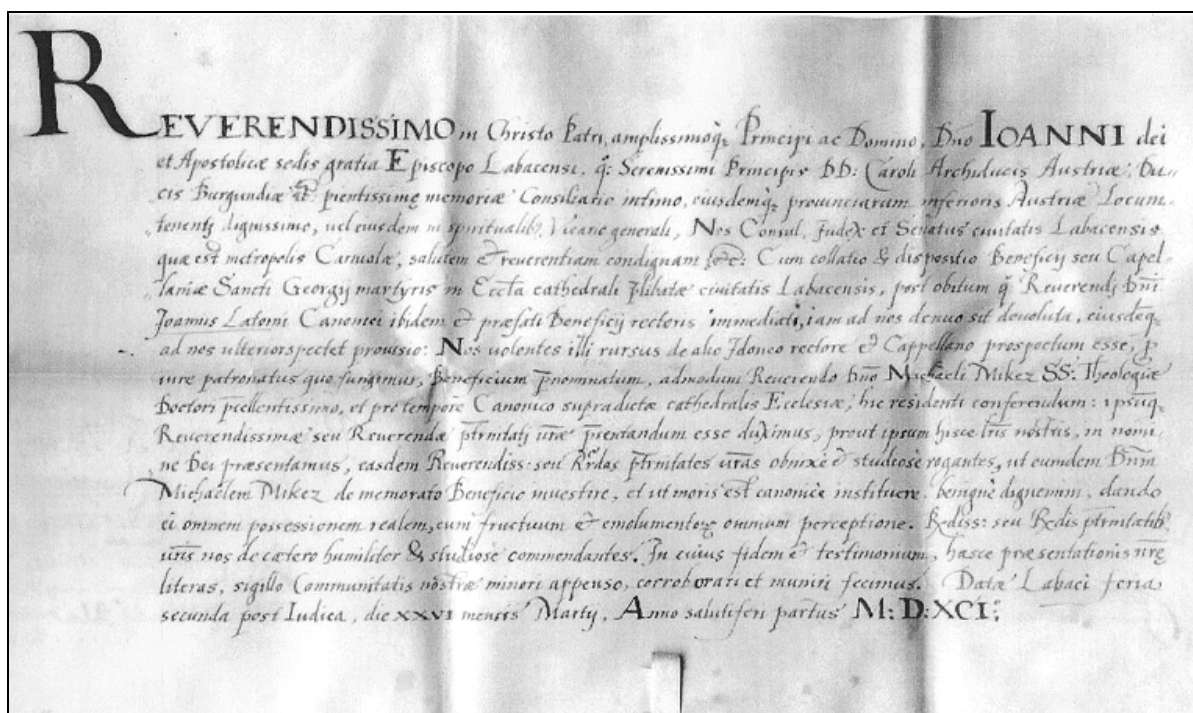 REVERENDISSIMO in Christo Patri, amplissimoq; Principi ac Domino, Dno IOANNI dei
et Apostolicæ sedis gratia Episcopo Labacensi, q: Serenissimi Principis DD: Caroli Archiducis Austriæ, Du-
cis Burgundiæ pientissimę memoriæ Consiliario intimo, eiusdemq; prouinciarum inferioris Austriæ Locum-
tenenti dignissimo, uel eiusdem in spiritualib; Vicario generali, Nos Consul, Judex et Senatus ciuitatis Labacensis
quæ est metropolis Carniolæ, salutem & reuerentiam condignam &c: Cum collatio & dispositio Beneficij seu Capel-
laniæ Sancti Georgij martyris in Eccl̃a cathedrali ciuitatis Labacensis, post obitum q̃ Reuerendi Dnĩ
Joannis Latomi Canonici ibidem & præfati Beneficij rectoris immediati, iam ad nos denuo sit deuoluta, eiusdeq;
ad nos ulterior spectet prouisio: Nos uolentes illi rursus de alio Jdoneo rectore & Cappellano prospectum esse, p
iure patronatus quo fungimur, Beneficium p̃nominatum, admodum Reuerendo Dño Michaeli Mikez SS: Theologiæ
Doctori p̃cellentissimo, et pro tempore Canonico supradictæ cathedralis Ecclesiæ, hic residenti conferendum: ipsũq;
Reuerendissimæ seu Reuerendæ pt̃rnitati ur̃æ p̃sentandum esse duximus, prout ipsum hisce lr̃is nostris, in nomi-
ne Dei præsentamus, easdem Reuerendiss: seu Rr̃das pt̃rnitates ur̃as obnixè & studiosè rogantes, ut eumdem Dñm
Michaëlem Mikez de memorato Beneficio inuestire, et ut moris est canonicè instituere, benignè dignemini, dando
ei omnem possessionem realem, cum fructuum & emolumentoꝝ omnium perceptione. Rediss: seu Redis pt̃rnitatib;
ur̃is nos de cætero humiliter & studiose commendantes. In cuius fidem & testimonium, hasce præsentationis nr̃ę
literas, sigillo Communitatis nostræ minori appenso, corroborari et muniri fecimus. Datæ Labaci feria
secunda post Iudica, die XXVI mensis Martij, Anno salutiferi partus M: D: XCI: